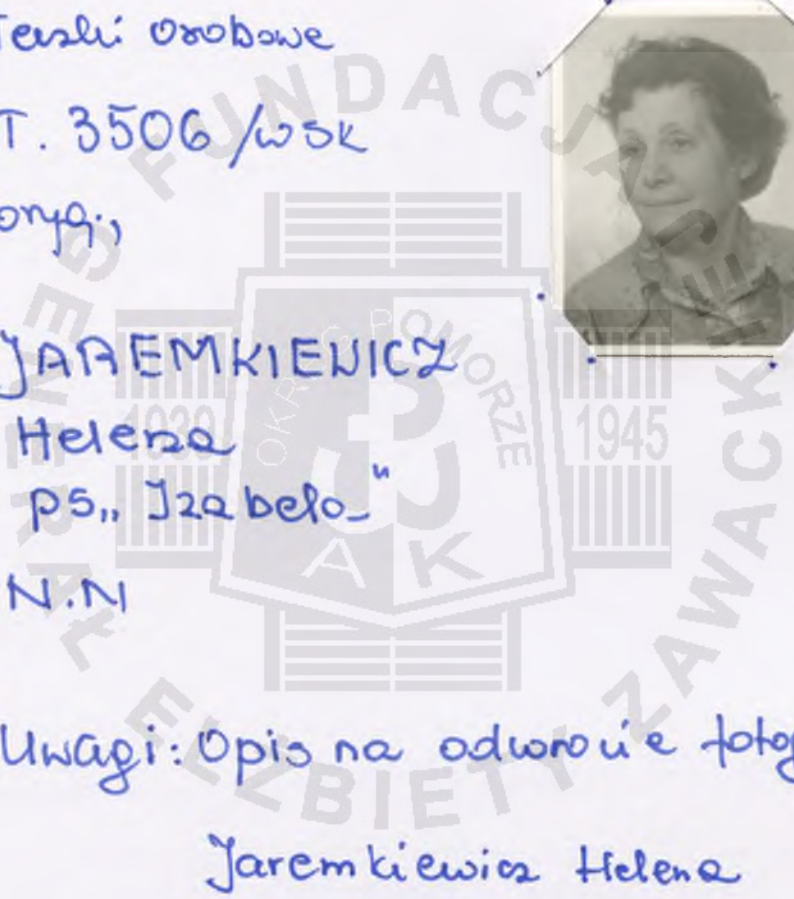 Teczki osobowe
T. 3506/WSK
oryg.,
JAREMKIEWICZ
Helena
ps„ Izabela"
N.N
Uwagi: Opis na odwrocie fotog
Jaremkiewicz Helena
FUNDACJA GENERAŁ ELŻBIETY ZAWACKIEJ
OKRĘG POMORZE
1939 1945
AK